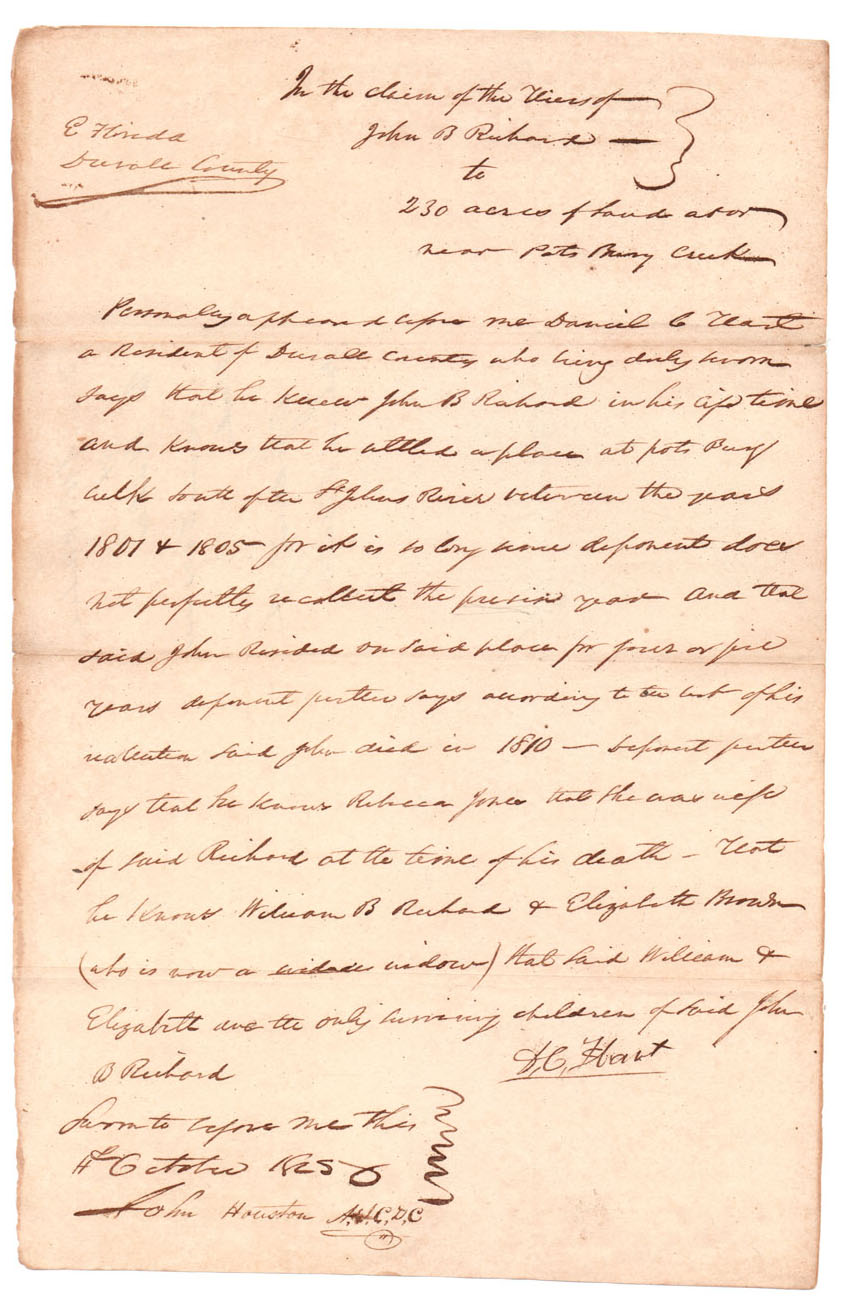 In the claim of the Heirs of
John B Richard —
to
230 acres of land at or
near Pots Burg Creek
E Florida
Duvall County
Personaly appeared before me Daniel C Hart
a Resident of Duvall County who being duly sworn
says that he Knew John B Richard in his life time
and Knows that he settled a place at pots Burg
South of the St Johns River between the years
1801 & 1805 — for it is so long since deponent does
not perfectly recollect the precise year and that
said John Resided on said place for four or five
years deponent further says according to the best of his
said John died in 1810 — Deponent further
says that he Knows Rebecca Jones that she was wife
of said Richard at the time of his death — that
he Knows William B Richard & Elizabeth Brown
(who is now a widow) that said William &
Elizabeth are the only surviving children of said John
B Richard
D. C. Hart
Sworn to before me this
October 1825
John Houston